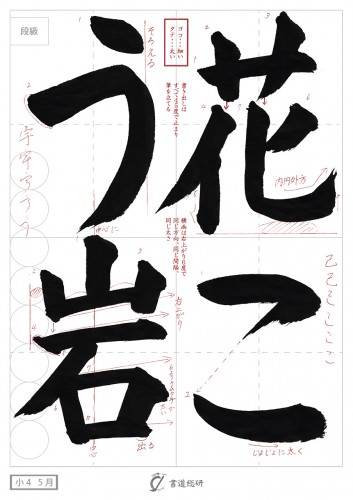 花こ
う岩
段級
ヨコ・・・細い
タテ・・・太い
そろえる
書き出しは
すべて45度で止まり
筆を立てる
内円外方
横画は右上がり6度で
同じ方向、同じ間隔、
同じ太さ
中心に
右上がり
出る
じょじょに太く
小4 5月
書道総研